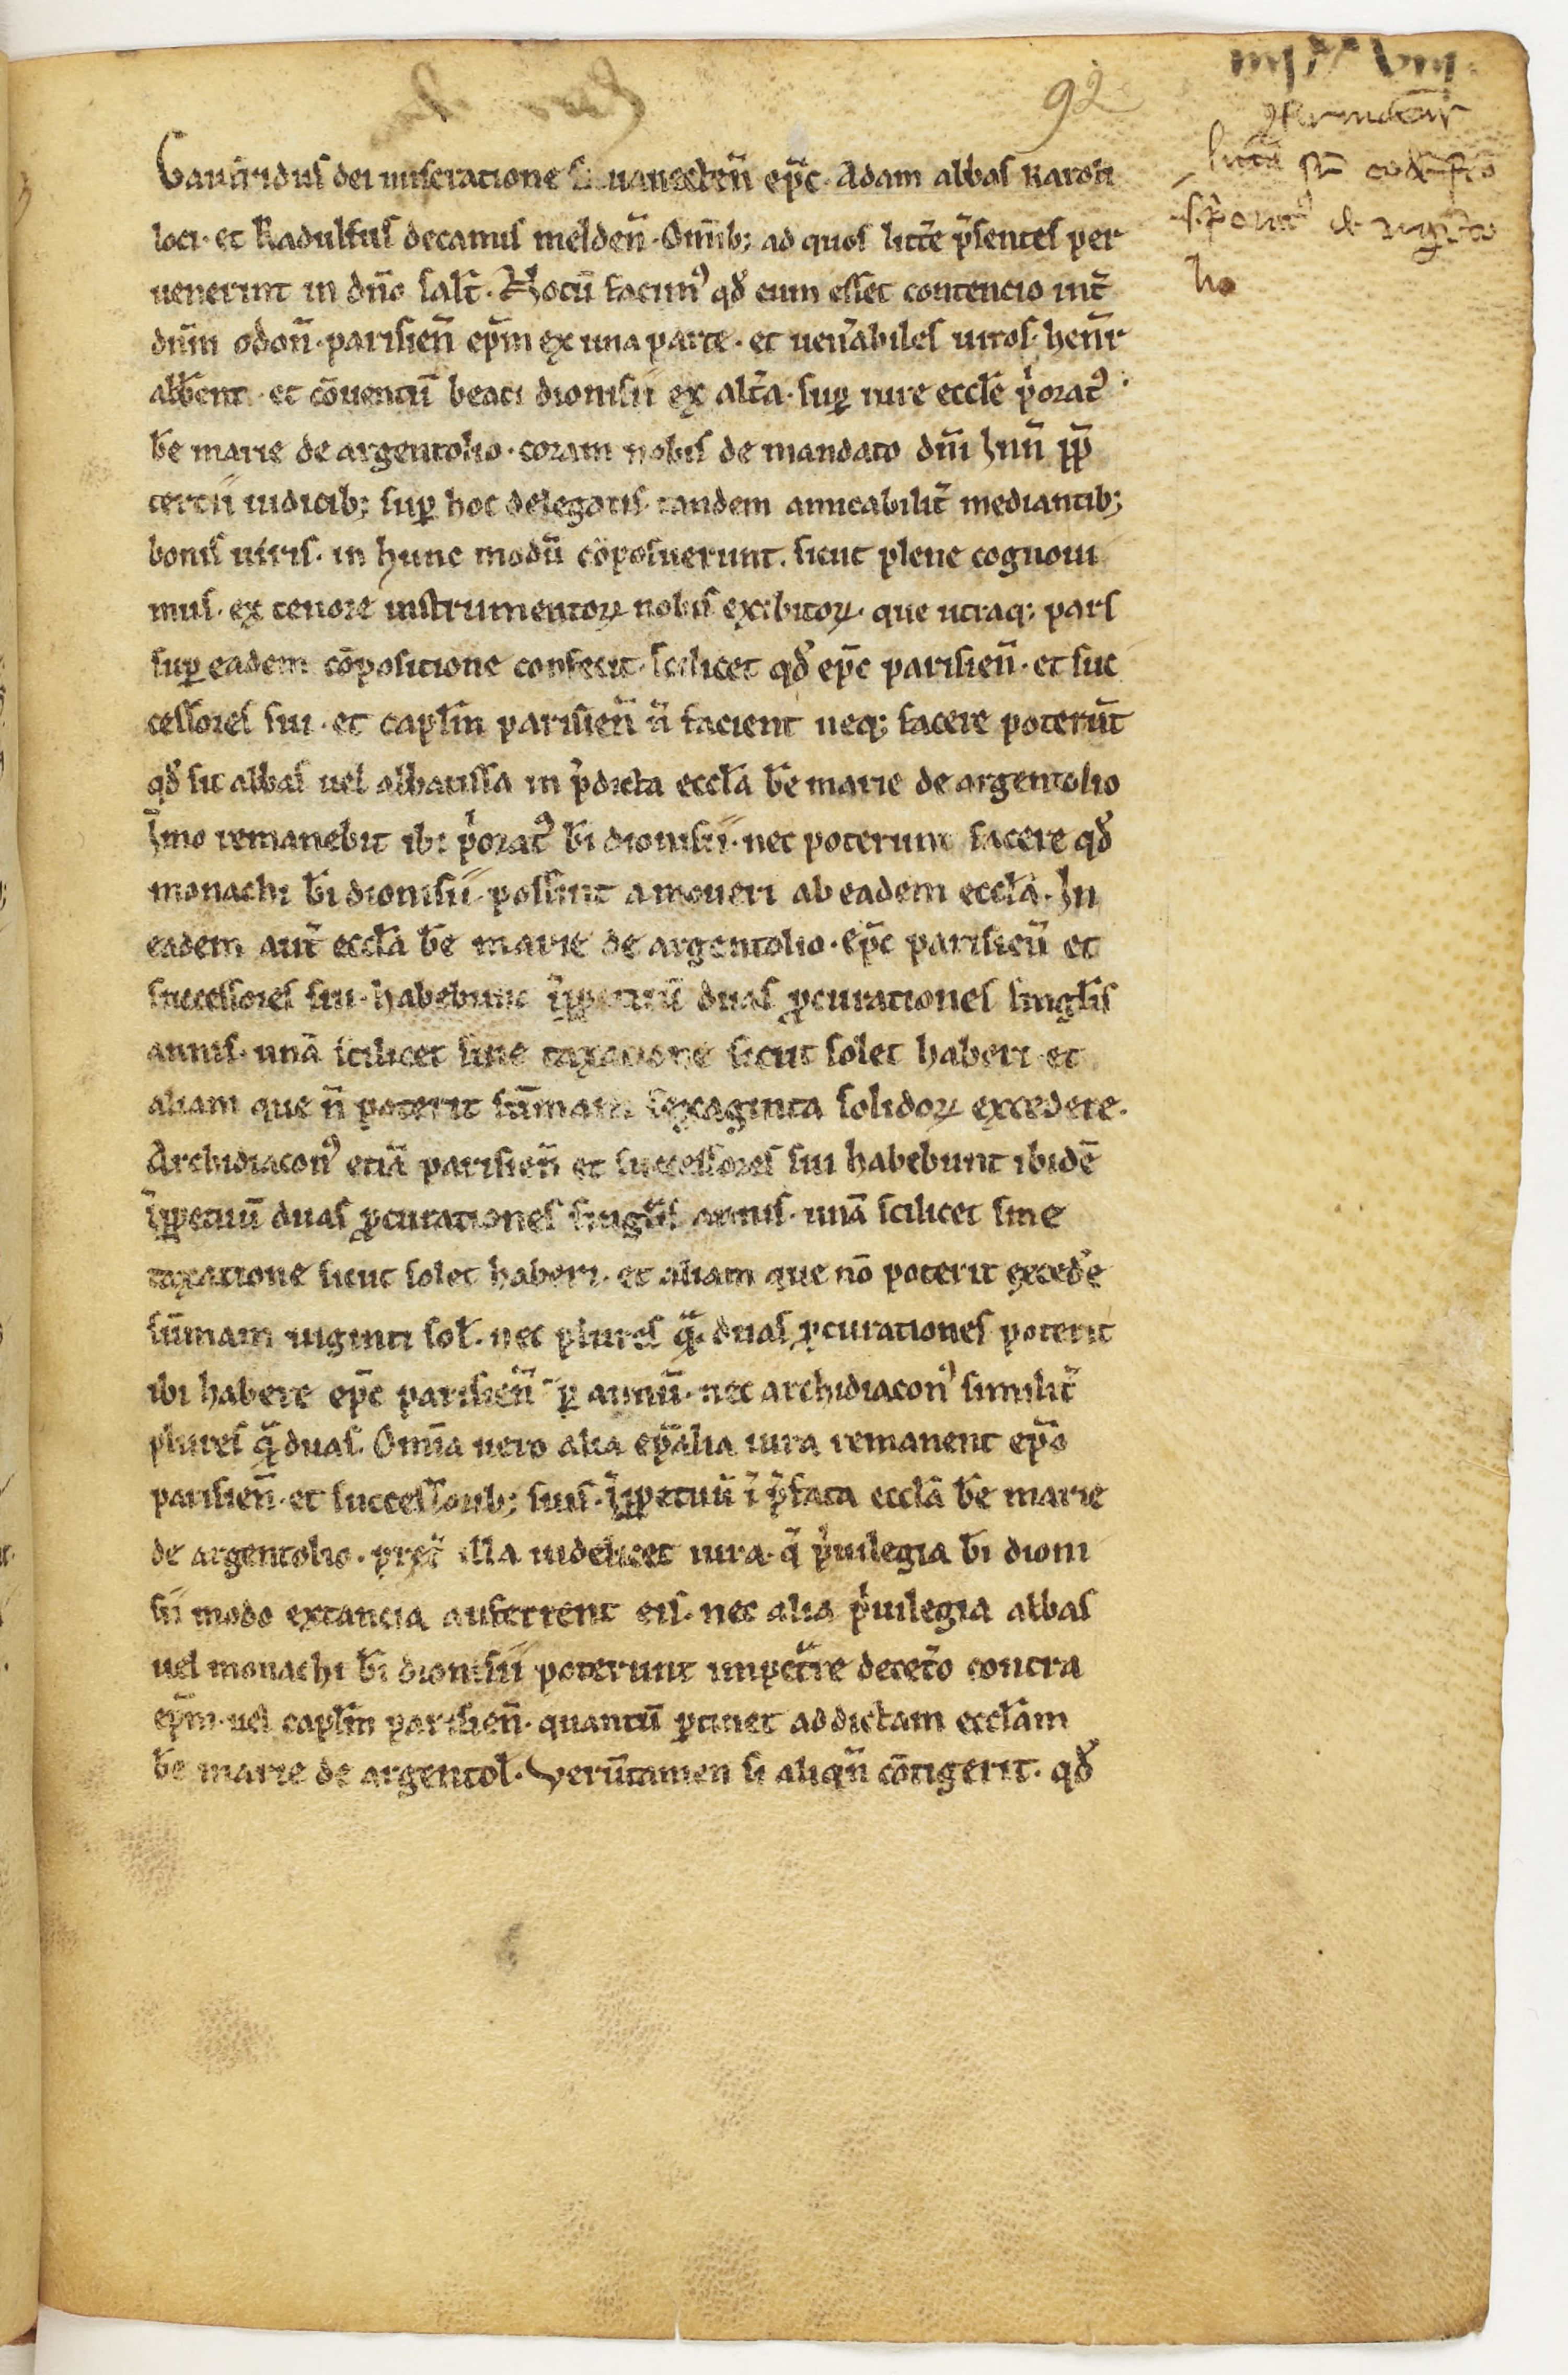 92
iiijxx viij
Gaufridus dei miseratione siluanecten̄ ep̄c. Adam abbas Karoli
loci. et Radulfus decanus melden̄. Omīb; ad quos litt̄e p̄sentes per
uenerint in dn̄o salt̄. Notū facim⁹ qd̓ cum esset contencio int̄
dn̄m odon̄. parisien̄ ep̄m ex una parte. et uen̄abiles uiros. henr̄
abb̄em. et cōuentū beati dionisii ex alt̄a. suꝑ iure eccl̄e p̓orat⁹
b̄e marie de argentolio. coram nobis de mandato dn̄i Inn̄ pp̄
tercii iudicib; suꝑ hoc delegatis. tandem amicabilit̄ mediantib;
bonis uiris. in hunc modū cōposuerunt. sicut plene cognoui
mus. ex tenore instrumentoꝝ nobis exibitoꝝ. que utraq; pars
suꝑ eadem cōpositione confecit. scilicet qd̓ ep̄c parisien̄. et suc
cessores sui. et capl̄m parisien̄ n̄ facient neq; facere poterūt
qd̓ sit abbas uel abbatissa in p̄dicta eccl̄a b̄e marie de argentolio
Imo remanebit ibi p̓orat⁹ b̄i dionisii. nec poterunt facere qd̓
monachi b̄i dionisii. possint amoueri ab eadem eccl̄a. In
eadem aut̄ eccl̄a b̄e marie de argentolio. ep̄c parisien̄ et
successores sui. habebunt īꝑpetuū duas ꝓcurationes singl̄is
annis. unā scilicet sine taxatione sicut solet haberi et
aliam que n̄ poterit sūmam sexaginta solidoꝝ excedere.
Archidiacon⁹ etiā parisien̄ et successores sui habebunt ibidē
īꝑpetuū duas ꝓcurationes singl̄is annis. unā scilicet sine
taxatione sicut solet haberi. et aliam que nō poterit exced̓e
sūmam uiginti sol̄. nec plures q̄. duas ꝓcurationes poterit
ibi habere ep̄c parisien̄ ꝑ annū. nec archidiacon⁹ similit̄
plures q̄ duas. Om̄ia uero alia ep̄alia iura remanent ep̄o
parisien̄. et successorib; suis. īꝑpetuū ī p̄fata eccl̄a b̄e marie
de argentolio. pret̄ illa uidelicet iura. q̄ p̓uilegia b̄i dioni
sii modo extancia auferrent eis. nec alia p̓uilegia abbas
uel monachi b̄i dionisii poterunt impet̄re decet̄o contra
ep̄m. uel capl̄m parisien̄. quantū ꝑtinet ad dictam eccl̄am
b̄e marie de argentol̄. Verūtamen si aliqn̄ cōtigerit. qd̓